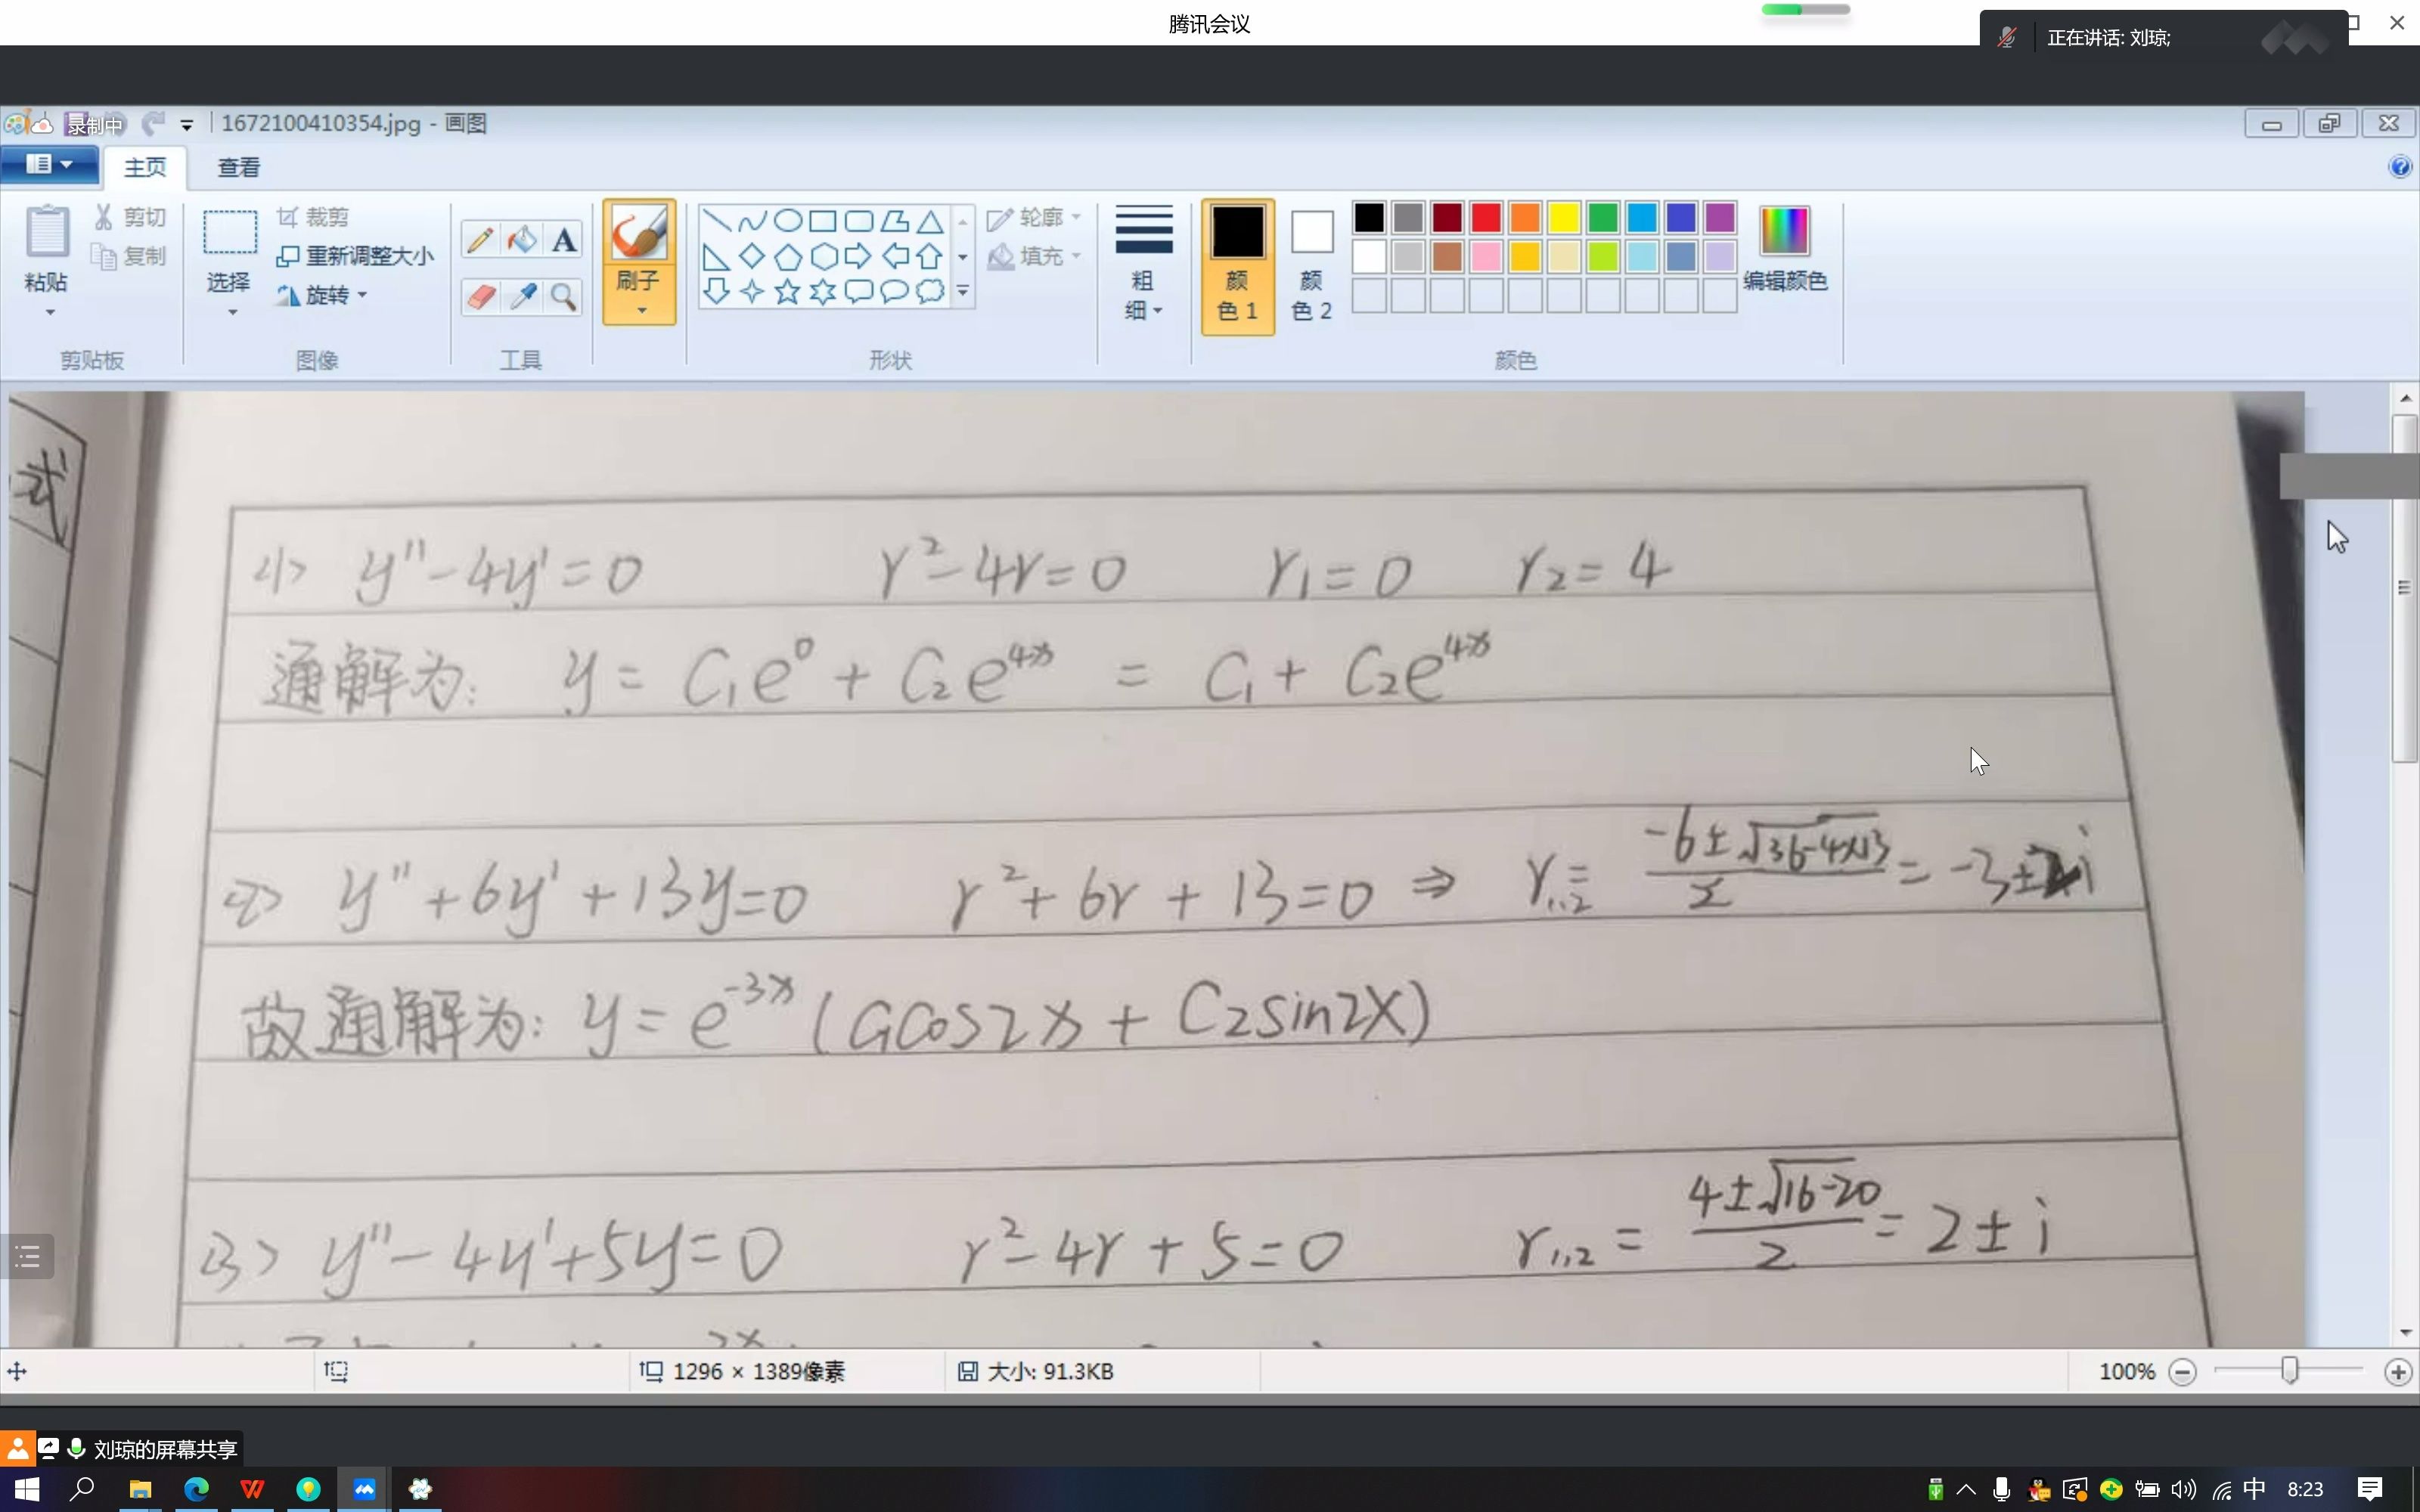 腾讯会议
正在讲话: 刘琼;
录制中
1672100410354.jpg - 画图
主页 查看
粘贴 剪切 复制
选择 裁剪 重新调整大小 旋转
A
刷子
轮廓 填充
粗细
颜色 1
颜色 2
编辑颜色
剪贴板 图像 工具 形状 颜色
式
(1) y''-4y'=0 r²-4r=0 r₁=0 r₂=4
通解为: y = C₁e⁰ + C₂e^{4x} = C₁ + C₂e^{4x}
(2) y''+6y'+13y=0 r²+6r+13=0 ⇒ r₁,₂ = (-6±√(36-4×13))/2 = -3±2i
故通解为: y = e^{-3x}(C₁cos2x + C₂sin2x)
(3) y''-4y'+5y=0 r²-4r+5=0 r₁,₂ = (4±√(16-20))/2 = 2±i
1296 × 1389像素 大小: 91.3KB 100%
刘琼的屏幕共享
中 8:23